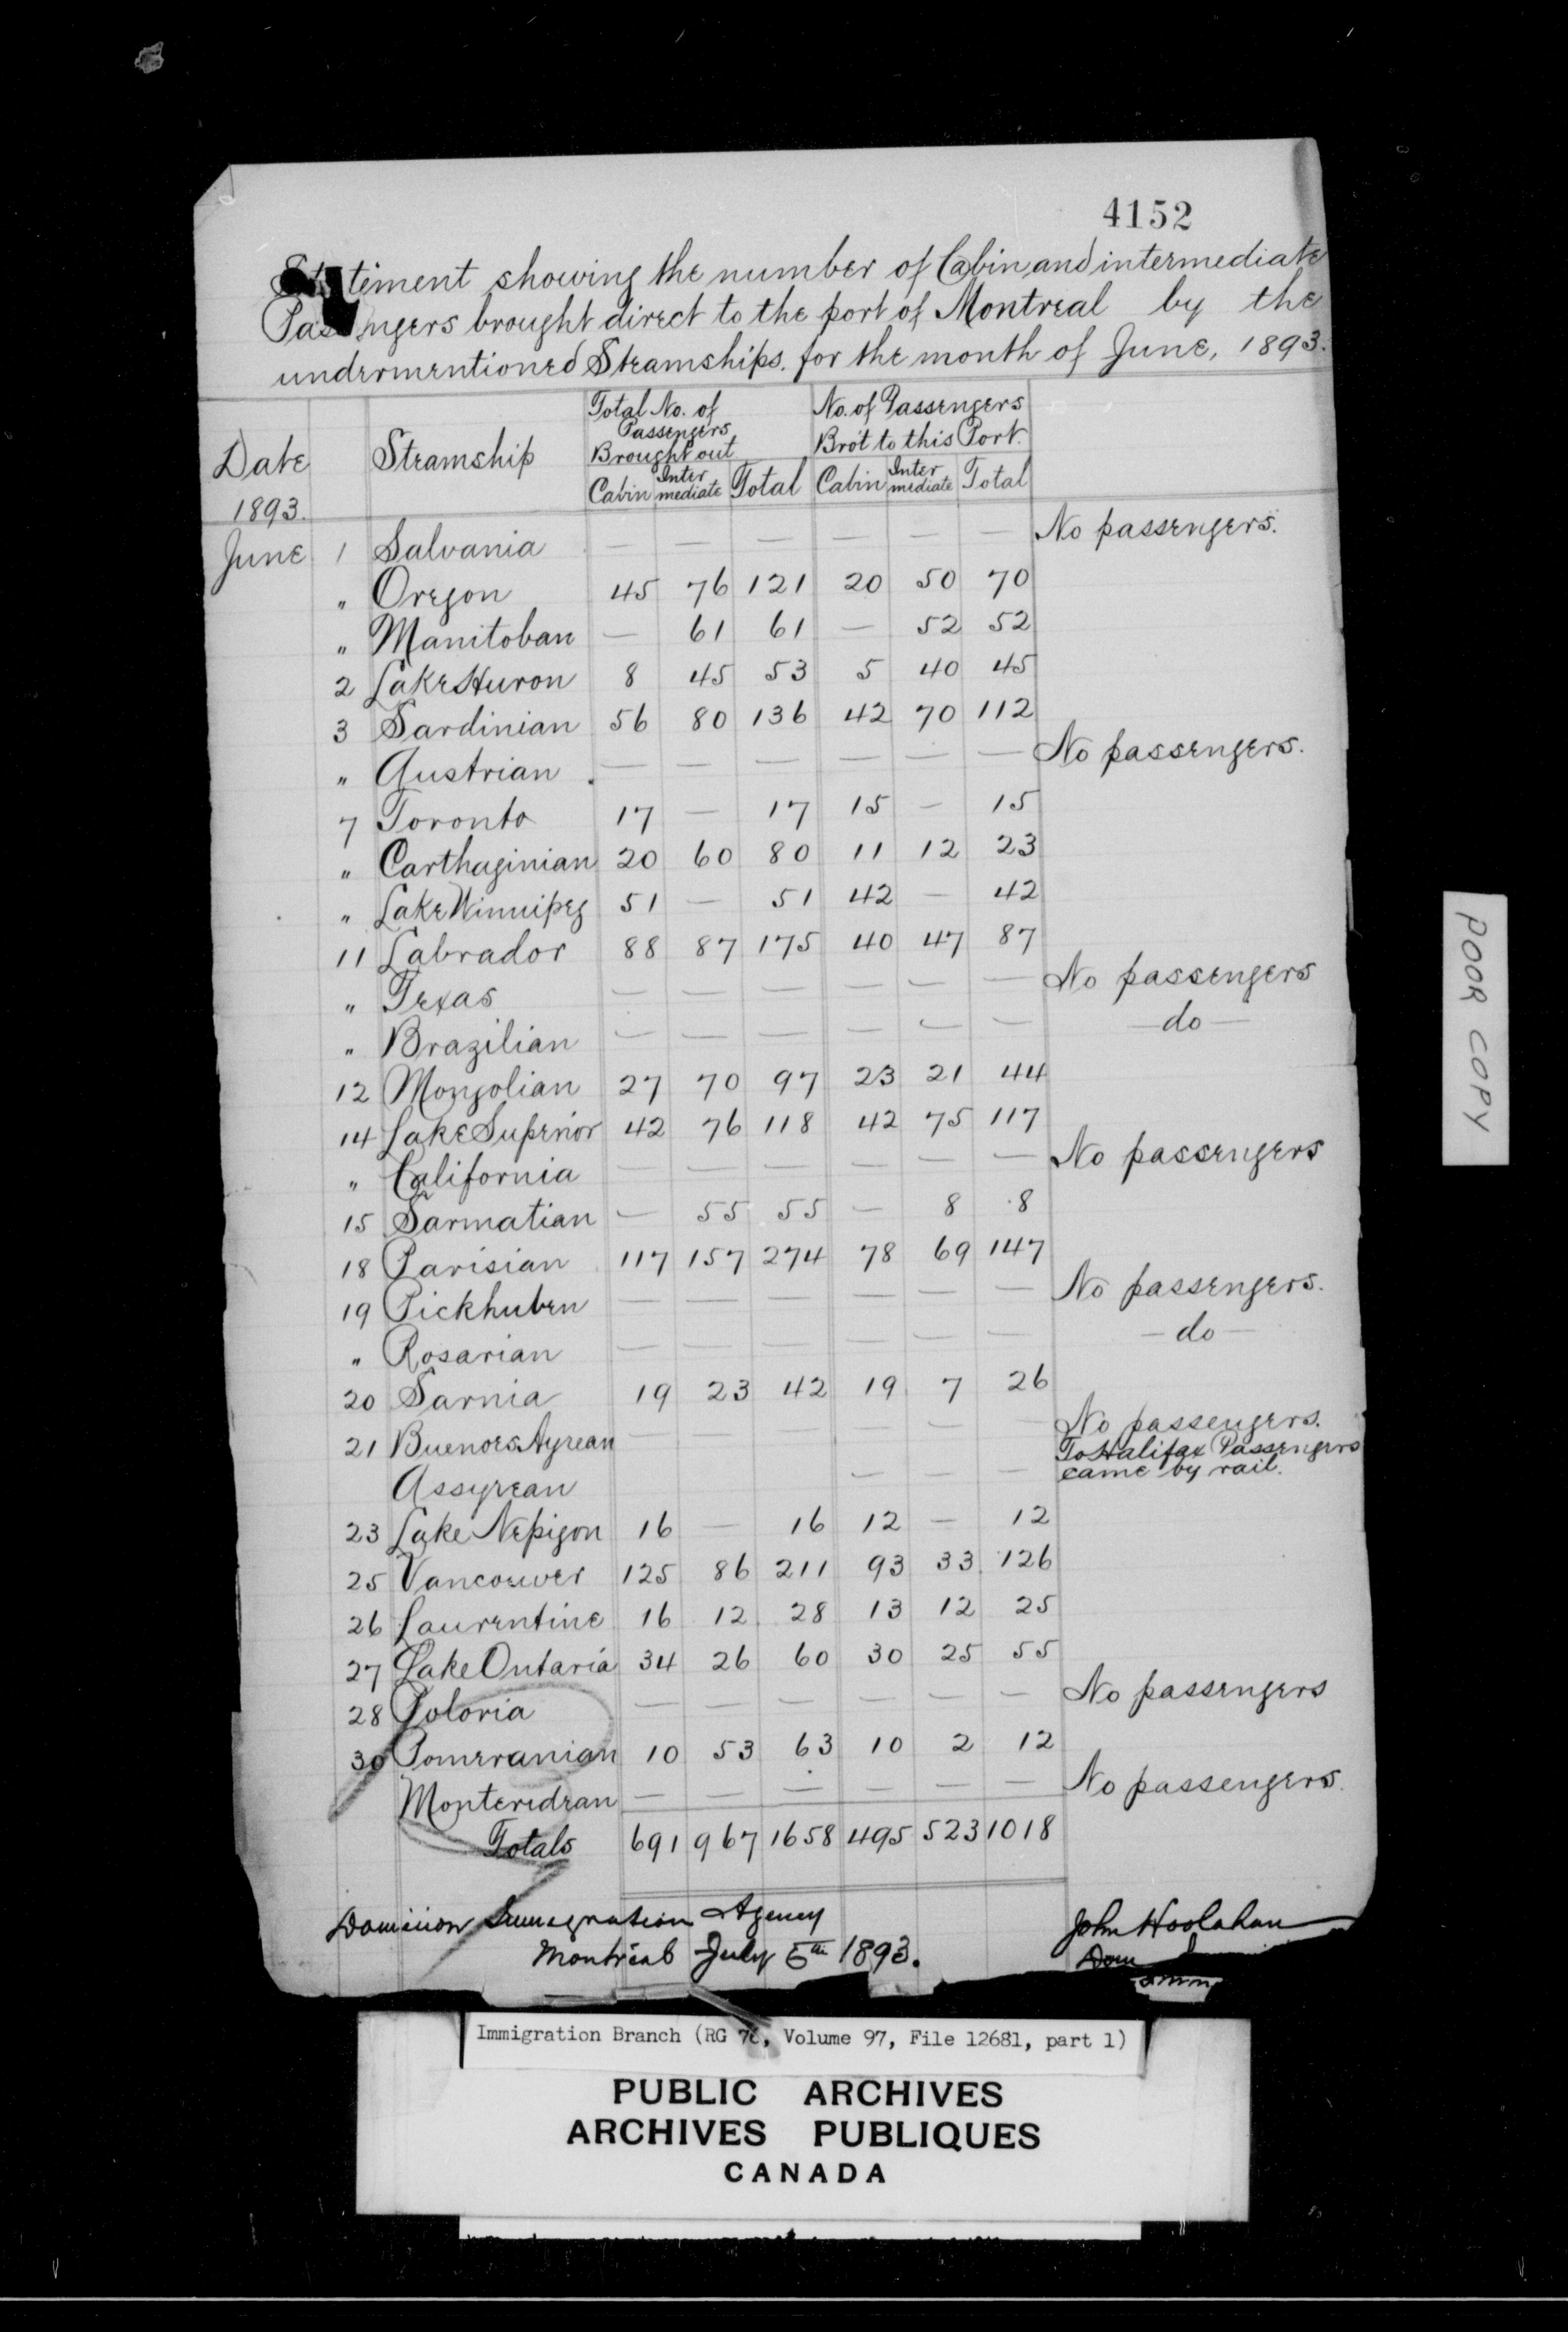 4152
Statement showing the number of Cabin and intermediate
Passengers brought direct to the port of Montreal by the
undermentioned Steamships. for the month of June, 1893.
Date 1893. Steamship Total No. of Passengers Brought out No. of Passengers Bro't to this Port.
Cabin Inter mediate Total Cabin Inter mediate Total
June 1 Salvania — — — — — — No passengers.
" Oregon 45 76 121 20 50 70
" Manitoban — 61 61 — 52 52
2 Lake Huron 8 45 53 5 40 45
3 Sardinian 56 80 136 42 70 112
" Austrian — — — — — — No passengers.
7 Toronto 17 — 17 15 — 15
" Carthaginian 20 60 80 11 12 23
" Lake Winnipeg 51 — 51 42 — 42
11 Labrador 88 87 175 40 47 87
" Texas — — — — — — No passengers
" Brazilian — — — — — — — do —
12 Mongolian 27 70 97 23 21 44
14 Lake Superior 42 76 118 42 75 117
" California — — — — — — No passengers
15 Sarmatian — 55 55 — 8 8
18 Parisian 117 157 274 78 69 147
19 Pickhuben — — — — — — No passengers.
" Rosarian — — — — — — — do —
20 Sarnia 19 23 42 19 7 26
21 Buenos Ayrean — — — — — — No passengers.
Assyrean — — — To Halifax Passengers came by rail.
23 Lake Nepigon 16 — 16 12 — 12
25 Vancouver 125 86 211 93 33 126
26 Laurentine 16 12 28 13 12 25
27 Lake Ontaria 34 26 60 30 25 55
28 Poloria — — — — — — No passengers
30 Pomeranian 10 53 63 10 2 12
Monteridean — — — — — — No passengers.
Totals 691 967 1658 495 523 1018
Dominion Immigration Agency
Montreal July 5th 1893.
John Hoolahan
Dom
POOR COPY
Immigration Branch (RG 76, Volume 97, File 12681, part 1)
PUBLIC ARCHIVES
ARCHIVES PUBLIQUES
CANADA